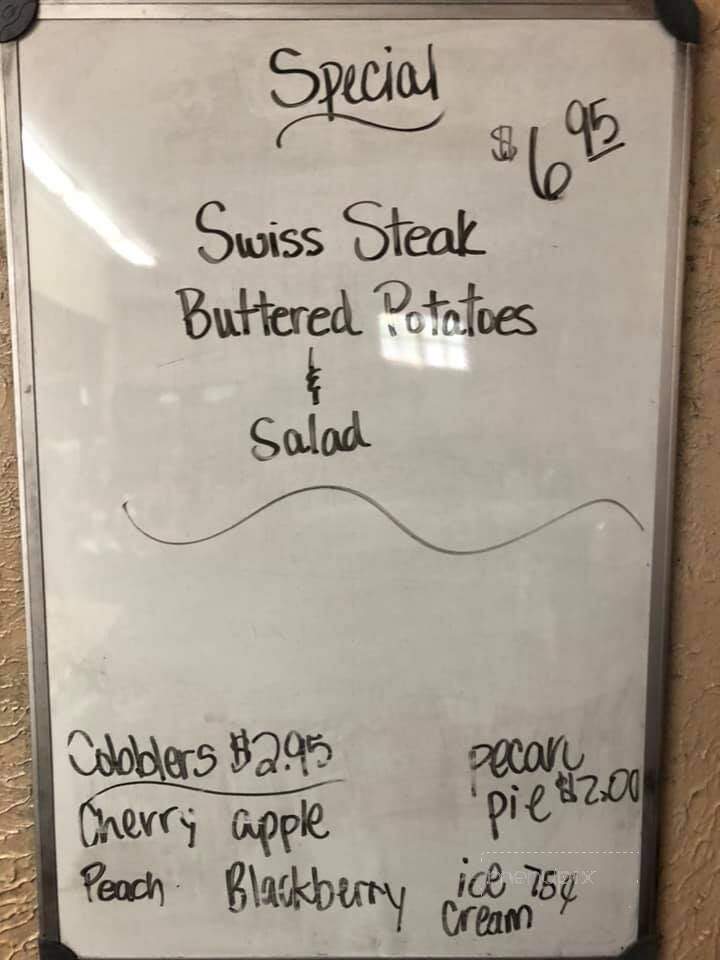 Special
$6.95
Swiss Steak
Buttered Potatoes
&
Salad
Cobblers $2.95
Cherry apple
Peach Blackberry
pecan
pie $2.00
ice 75¢
Cream